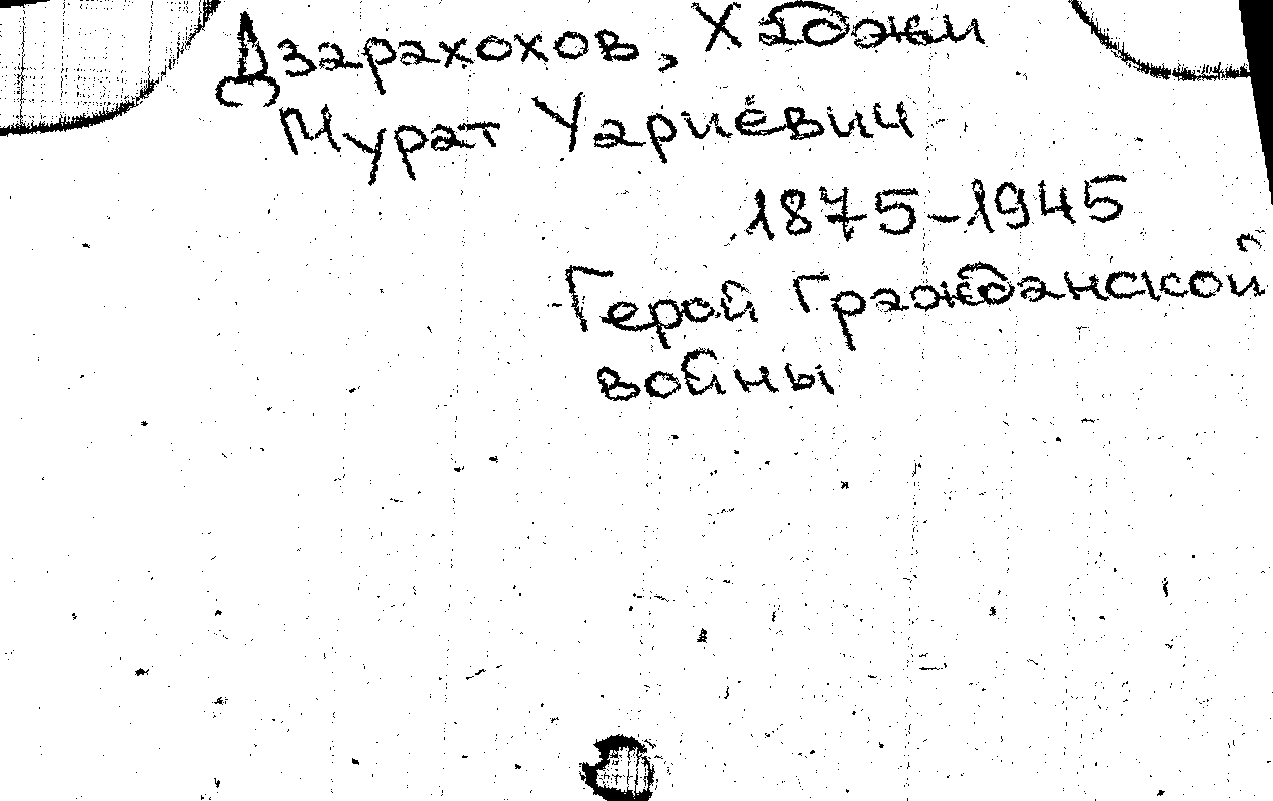 Дзарахохов, Хаджи
Мурат Уариевич
1875-1945
Герой Гражданской
войны